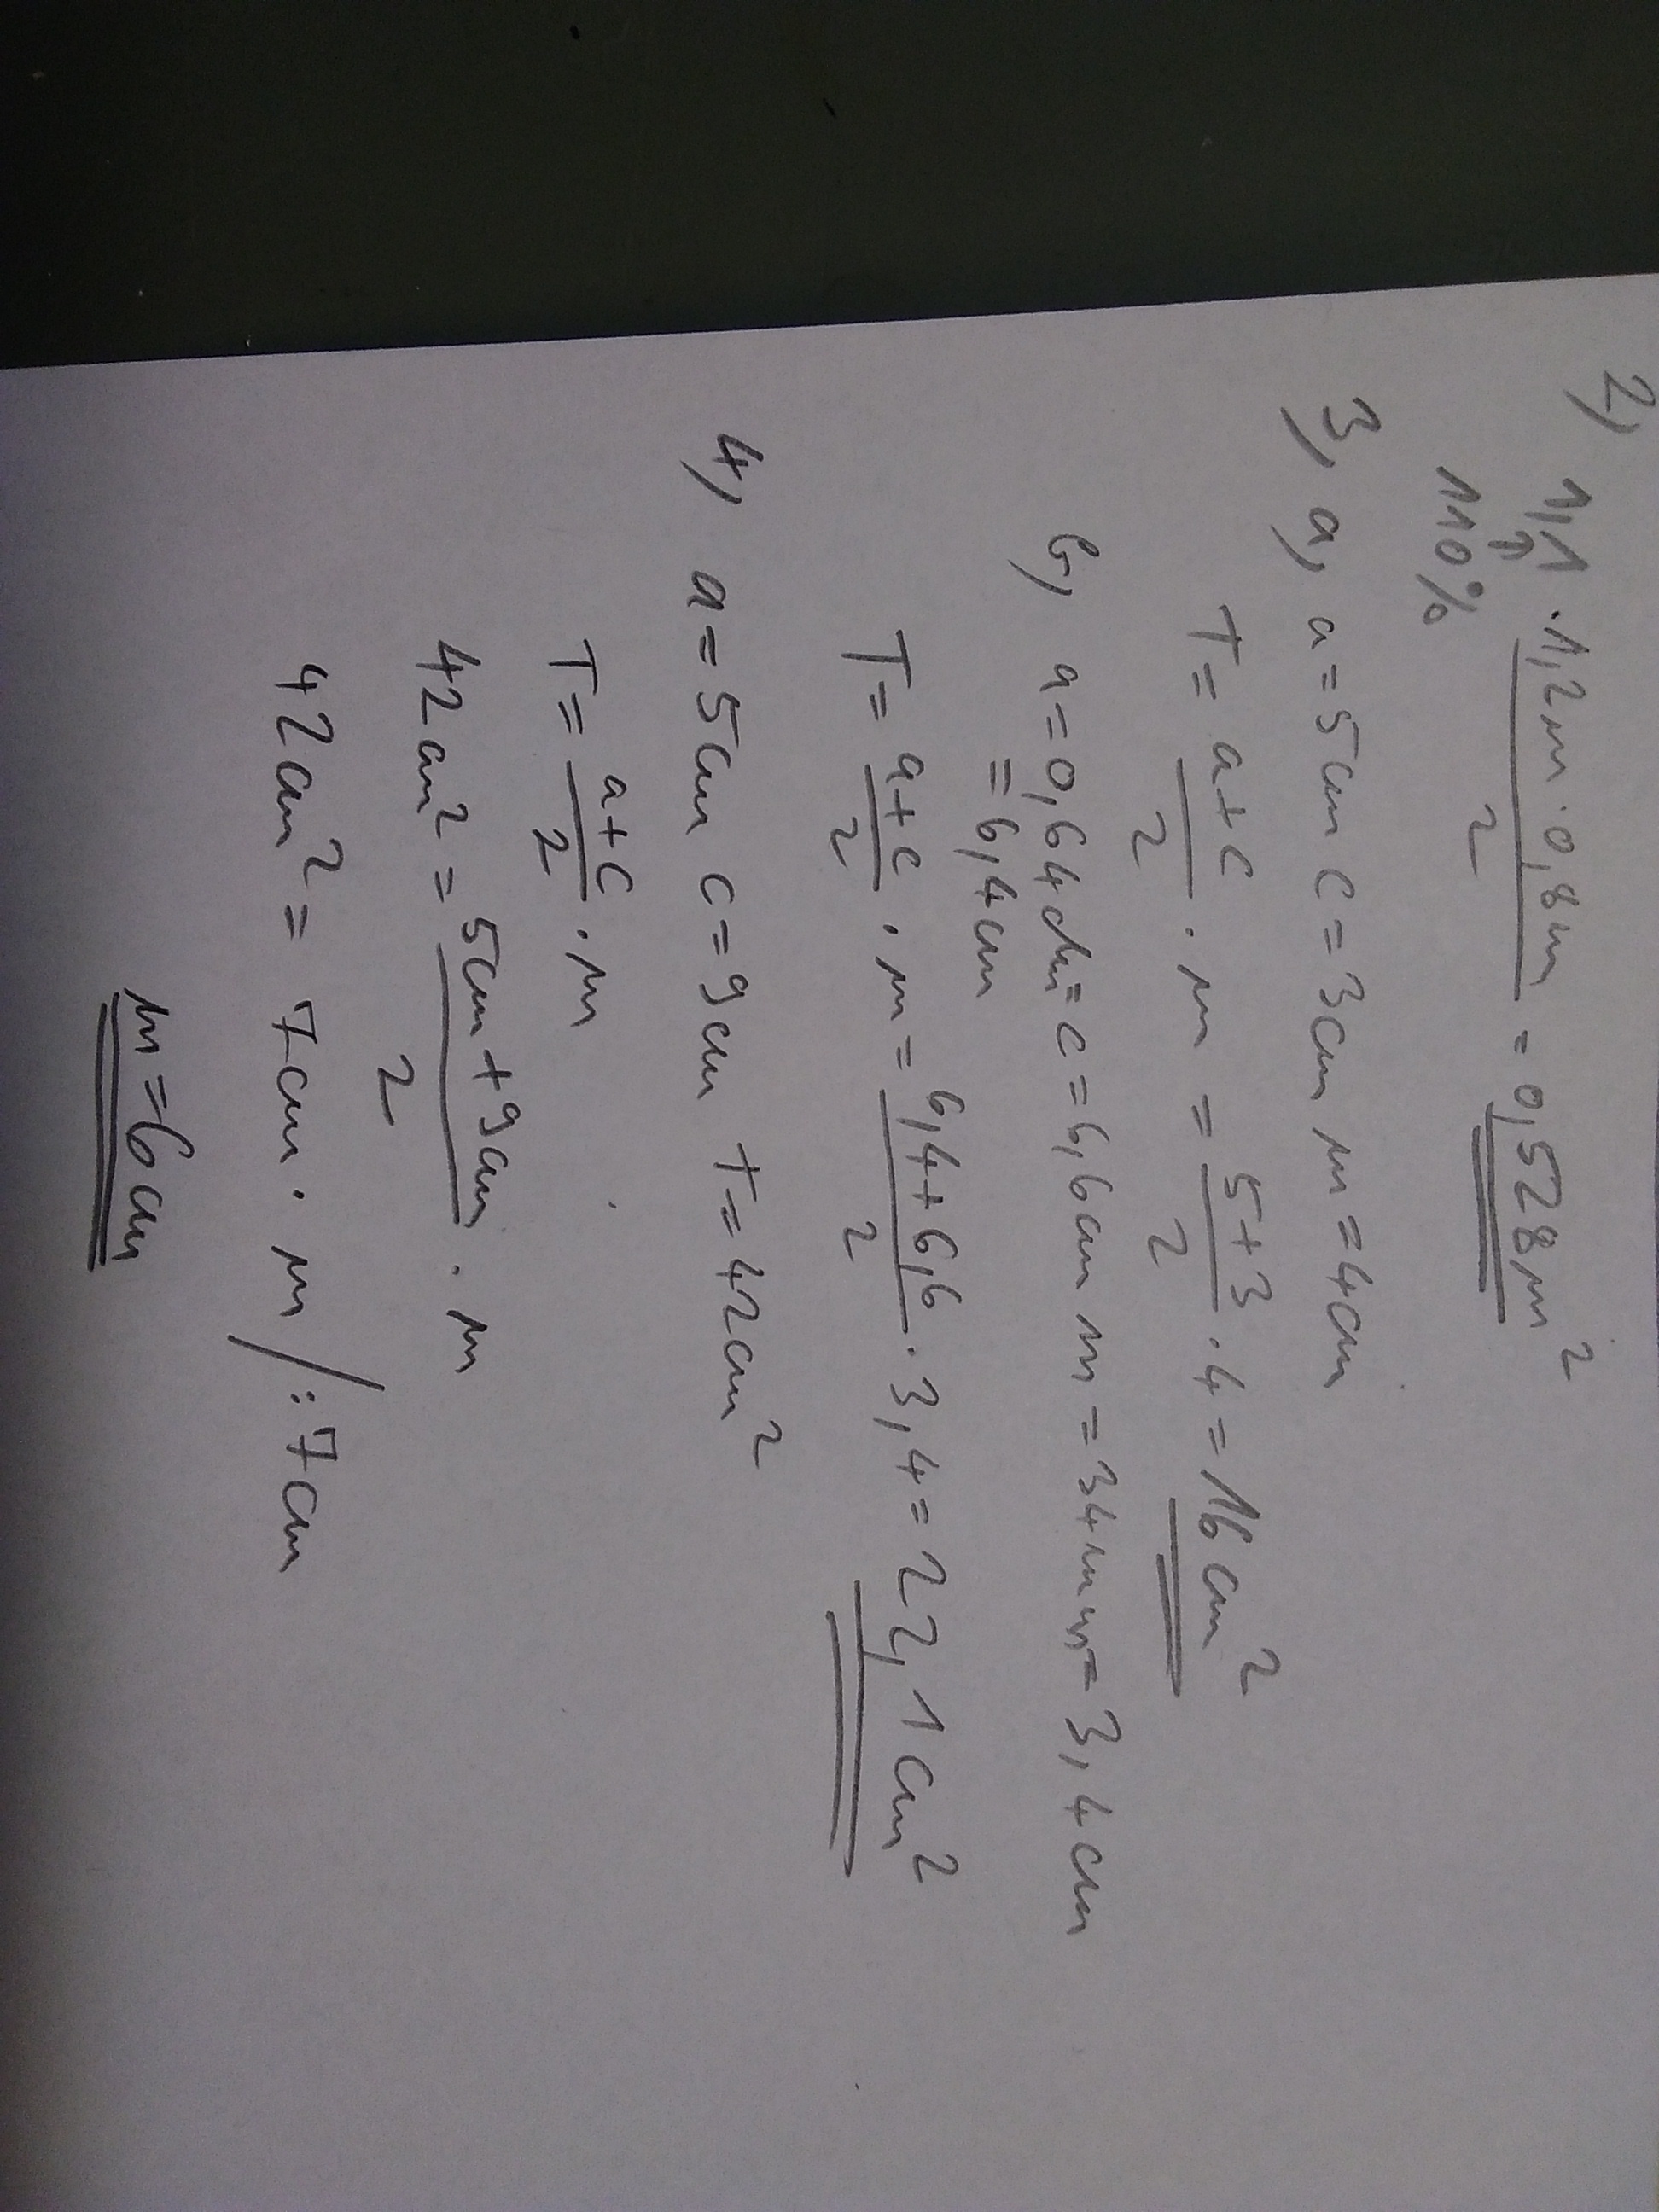 2, 1,1 · 1,2m · 0,8m / 2 = 0,528m²
110%
3, a, a = 5cm c = 3cm m = 4cm
T = a+c / 2 · m = 5+3 / 2 · 4 = 16cm²
b, a = 0,64dm = c = 6,6cm m = 34mm = 3,4cm
= 6,4cm
T = a+c / 2 · m = 6,4+6,6 / 2 · 3,4 = 22,1cm²
4, a = 5cm c = 9cm T = 42cm²
T = a+c / 2 · m
42cm² = 5cm+9cm / 2 · m
42cm² = 7cm · m /:7cm
m = 6cm